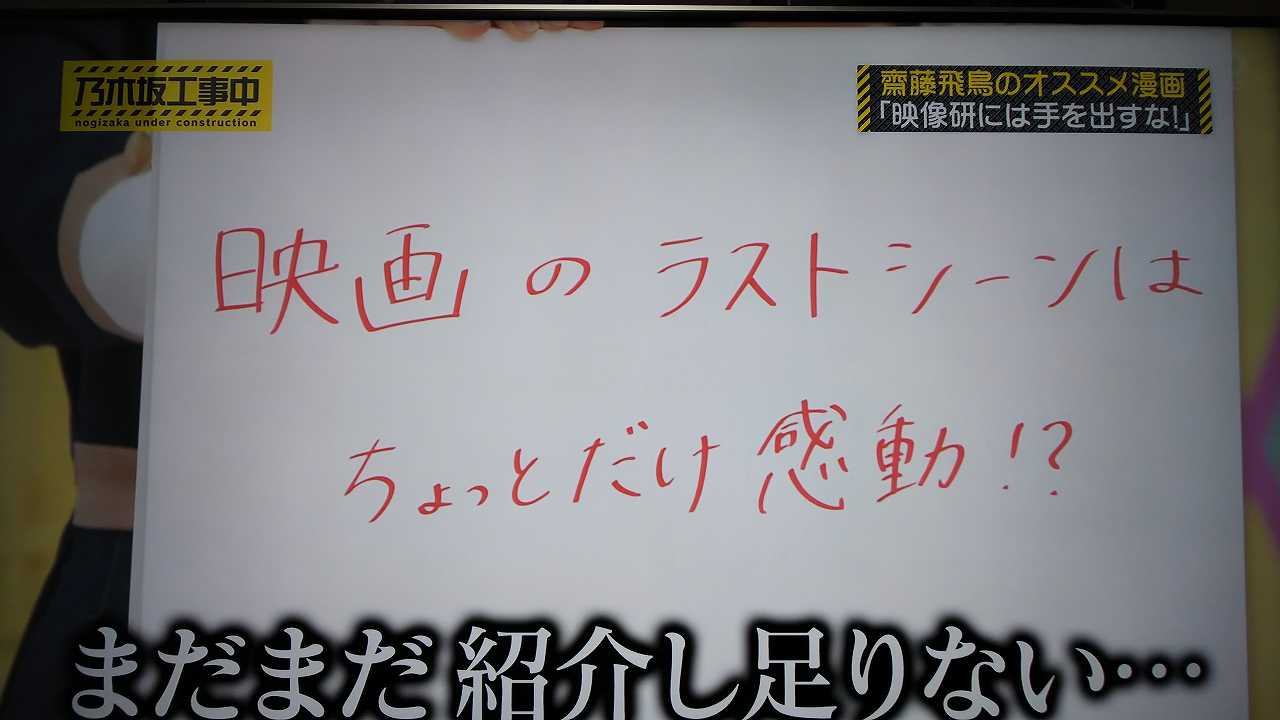 乃木坂工事中
nogizaka under construction
齋藤飛鳥のオススメ漫画
「映像研には手を出すな!」
映画のラストシーンは
ちょっとだけ感動!?
まだまだ紹介し足りない…